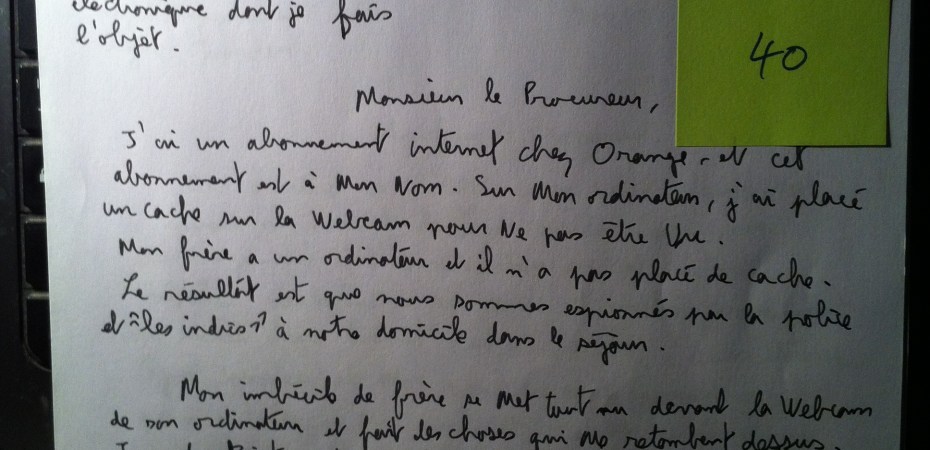 électronique dont je fais
l'objet.
40
Monsieur le Procureur,
J'ai un abonnement internet chez Orange, et cet
abonnement est à mon Nom. Sur mon ordinateur, j'ai placé
un cache sur la Webcam pour ne pas être Vu.
Mon frère a un ordinateur et il n'a pas placé de cache.
Le résultat est que nous sommes espionnés par la police
et "les indics" à notre domicile dans le séjour.
Mon imbécile de frère se met tout nu devant la Webcam
de son ordinateur et fait des choses qui me retombent dessus.